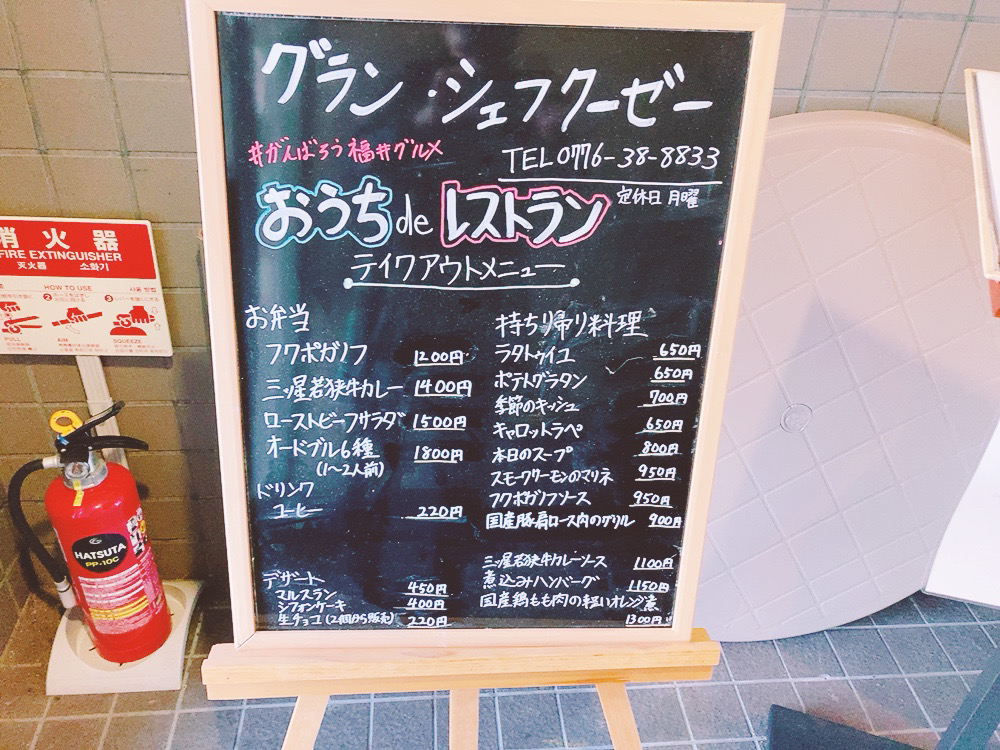 グラン・シェフクーゼー
#がんばろう福井グルメ
TEL 0776-38-8833
定休日 月曜
おうち de レストラン
テイクアウトメニュー
お弁当
フクポガノフ 1200円
三ッ星若狭牛カレー 1400円
ローストビーフサラダ 1500円
オードブル6種 1800円
(1〜2人前)
ドリンク
コーヒー 220円
デザート
マルスラン 450円
シフォンケーキ 400円
生チョコ(2個から販売) 220円
持ちり帰り料理
ラタトゥイユ 650円
ポテトグラタン 650円
季節のキッシュ 700円
キャロットラペ 650円
本日のスープ 800円
スモークサーモンのマリネ 950円
フクポガノフソース 950円
国産豚肩ロース肉のグリル 900円
三ッ星若狭牛カレーソース 1100円
煮込みハンバーグ 1150円
国産鶏もも肉の軽いオレンジ煮
1300円
消火器
FIRE EXTINGUISHER
灭火器 소화기
HOW TO USE
사용 방법
2
3
PULL
AIM
SQUEEZE
HATSUTA
PP-10C